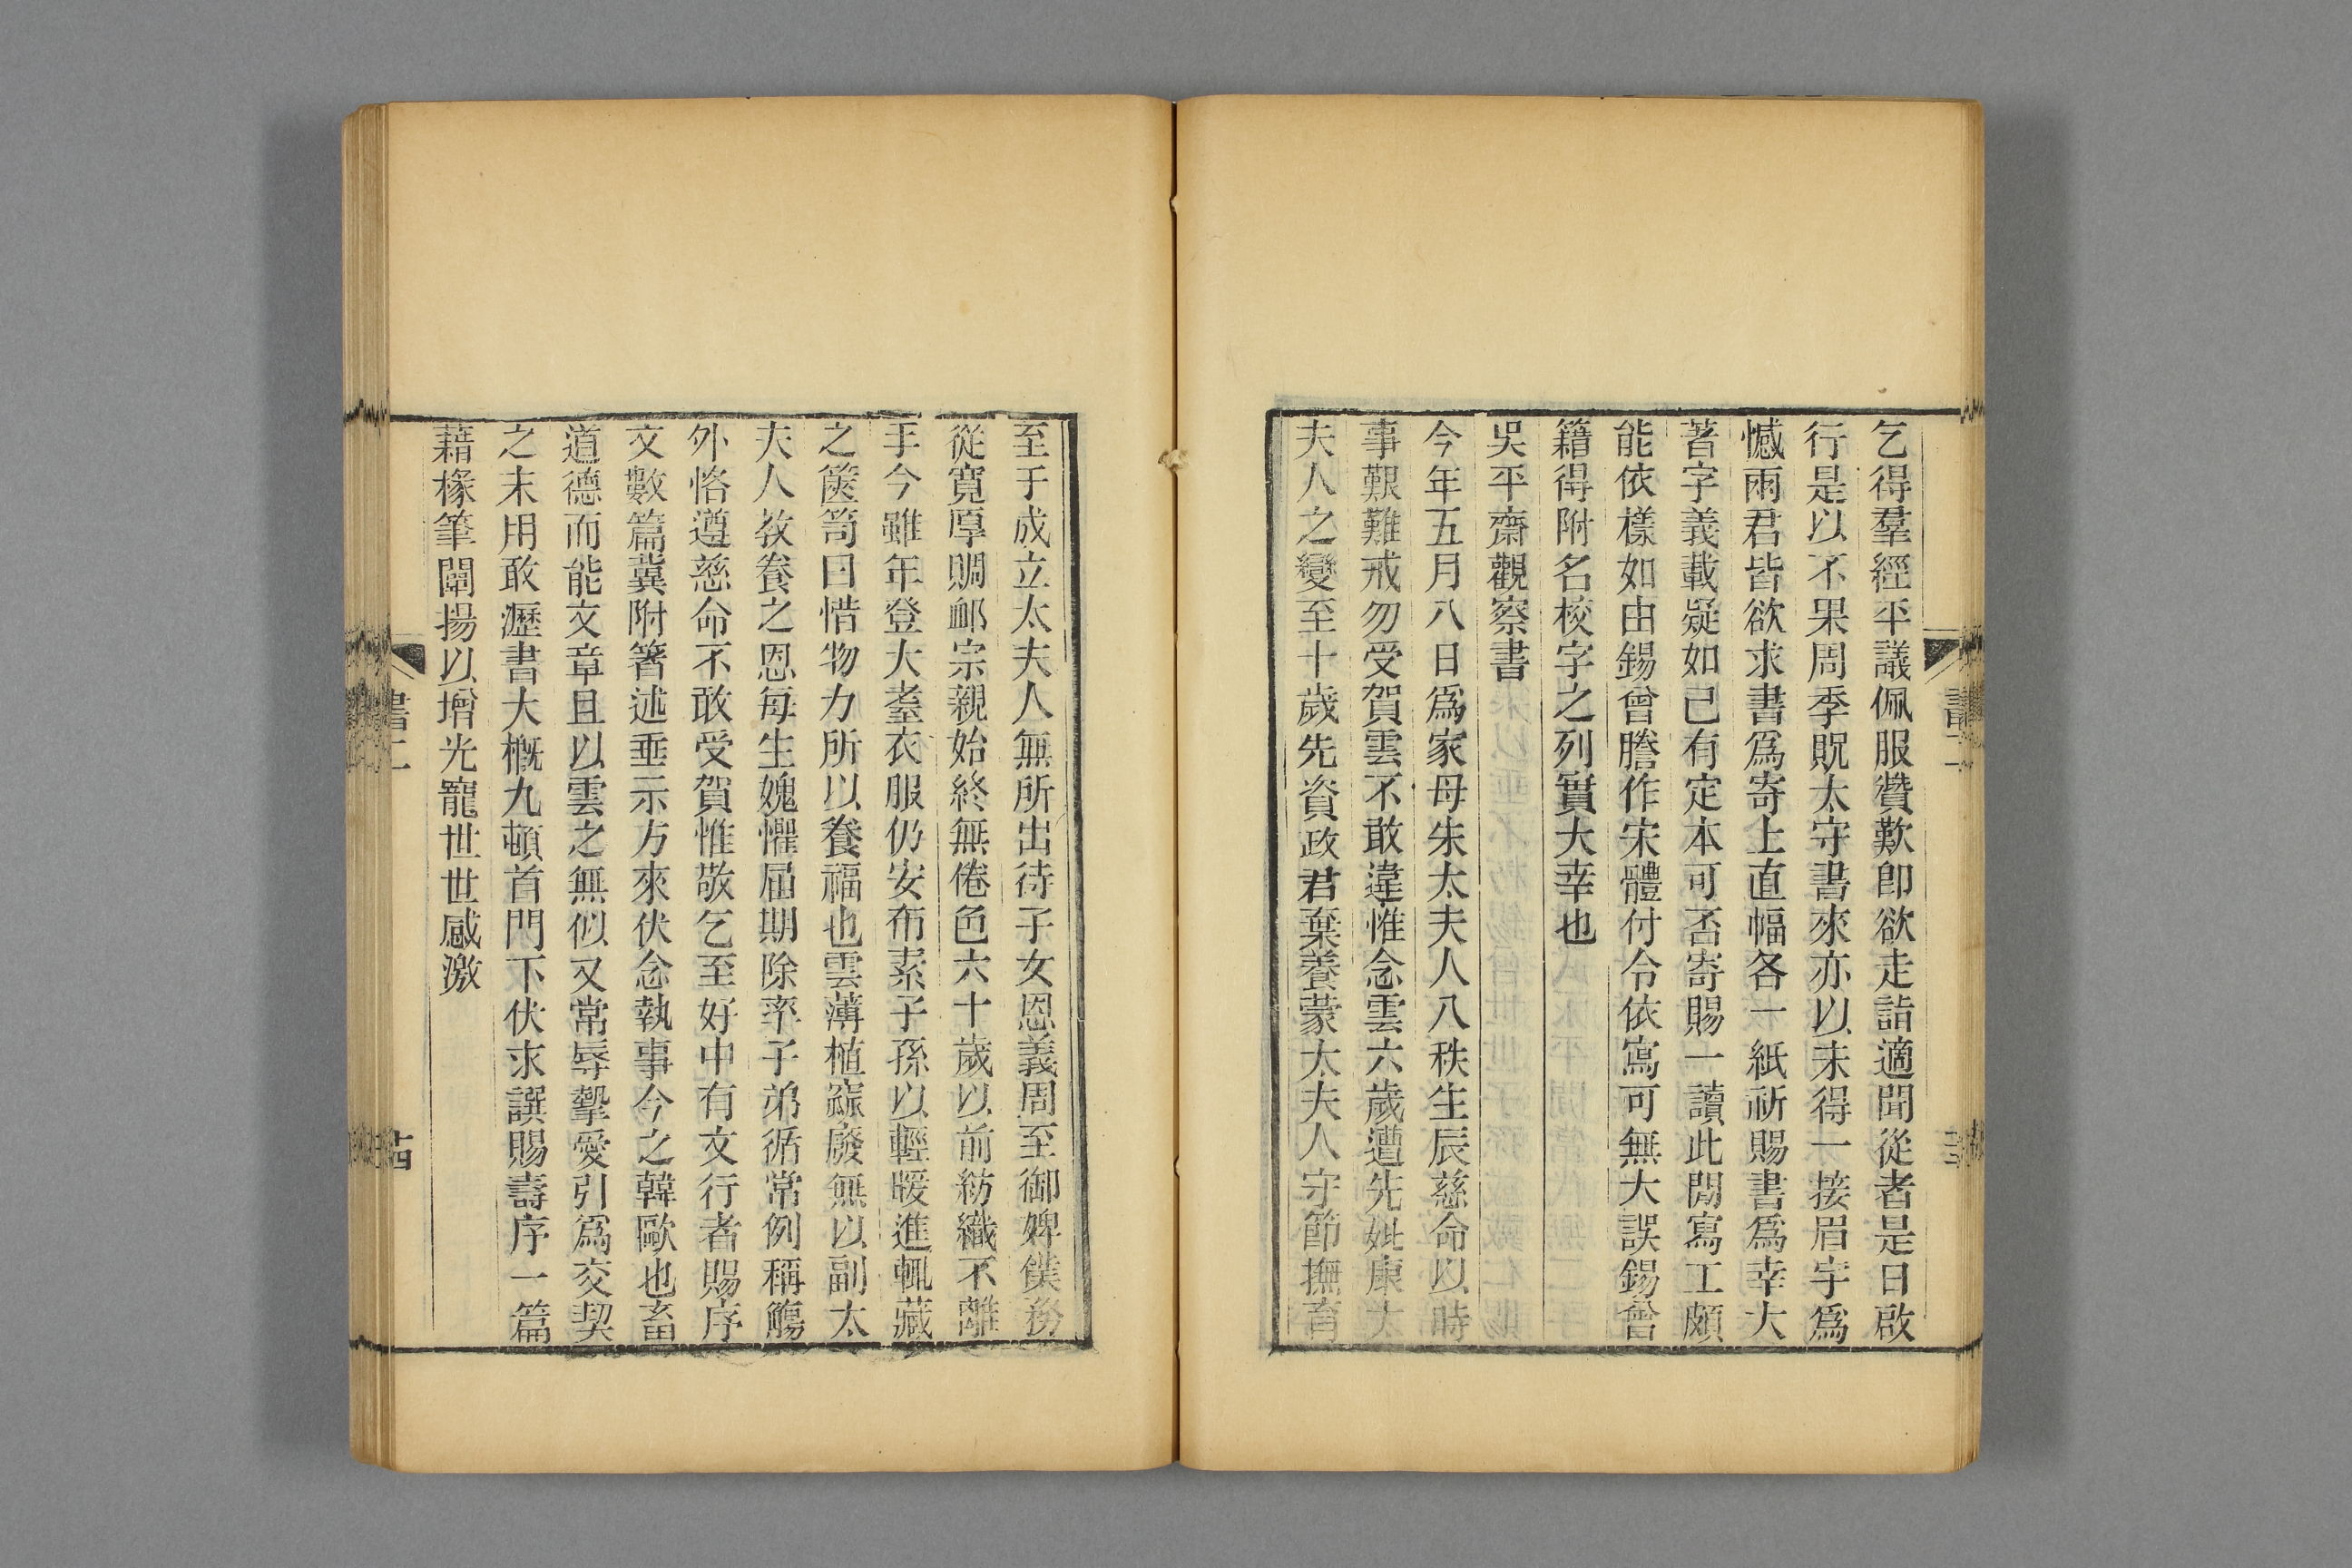 乞得羣經平議佩服贊歎即欲走詣適聞從者是日啟
行是以不果周季貺太守書來亦以未得一接眉宇爲
憾雨君皆欲求書爲寄上直幅各一紙祈賜書爲幸大
著字義載疑如已有定本可否寄賜一讀此閒寫工頗
能依樣如由錫曾謄作宋體付令依寫可無大誤錫曾
籍得附名校字之列實大幸也
吳平齋觀察書
今年五月八日爲家母朱太夫人八秩生辰慈命以時
事艱難戒勿受賀雲不敢違惟念雲六歲遭先妣康太
夫人之變至十歲先資政君棄養蒙太夫人守節撫育
至于成立太夫人無所出待子女恩義周至御婢僕務
從寬厚賙䘏宗親始終無倦色六十歲以前紡織不離
手今雖年登大耋衣服仍安布素子孫以輕暖進輒藏
之篋笥曰惜物力所以養福也雲薄植窳廢無以副太
夫人教養之恩每生媿懼屆期除率子弟循常例稱觴
外恪遵慈命不敢受賀惟敬乞至好中有文行者賜序
文數篇冀附箸述垂示方來伏念執事今之韓歐也畜
道德而能文章且以雲之無似又常辱摯愛引爲交契
之末用敢瀝書大槪九頓首門下伏求譔賜壽序一篇
藉椽筆闡揚以增光寵世世感激
書二
十四